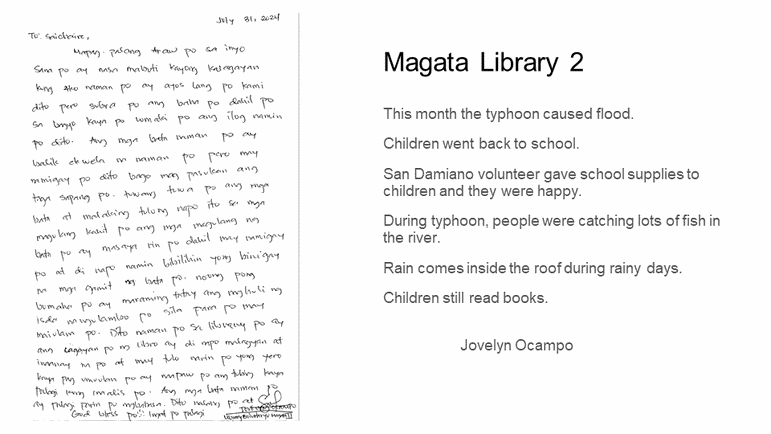 July 31, 2024
To: Saichaire,
Mapag-palang Araw po sa inyo
Sana po ay nasa mabuti kayong kalagayan
kung Ako naman po ay ayos lang po kami
dito pero sobra po ang baha po dahil po
sa bagyo kaya po lumaki po ang ilog namin
po dito. Ang mga bata naman po ay
balik eskwela na naman po pero may
nmigay po dito bago mag pasukan ang
taga sapang po. tuwang tuwa po ang mga
bata at malaking tulong napo ito sa mga
magulang kahit po ang mga magulang ng
bata po ay masaya rin po dahil may namigay
po at di napo namin bibilihin yong binigay
na mga gamit ng bata po. noong pong
bumaha po ay maraming tatay ang nghuli ng
isda po sila para po may
maiulam po. Dito naman po sa library po ay
ang lagayan po ng libro ay di npo malagyan at
na po at may tulo narin po yong yero
kaya pag umuulan po ay po ang tubig kaya
palagi lang po. Ang mga bata naman po
ay palagi parin po Dito po at
God bless po!! Ingat po palagi
Magata Library 2
This month the typhoon caused flood.
Children went back to school.
San Damiano volunteer gave school supplies to
children and they were happy.
During typhoon, people were catching lots of fish in
the river.
Rain comes inside the roof during rainy days.
Children still read books.
Jovelyn Ocampo